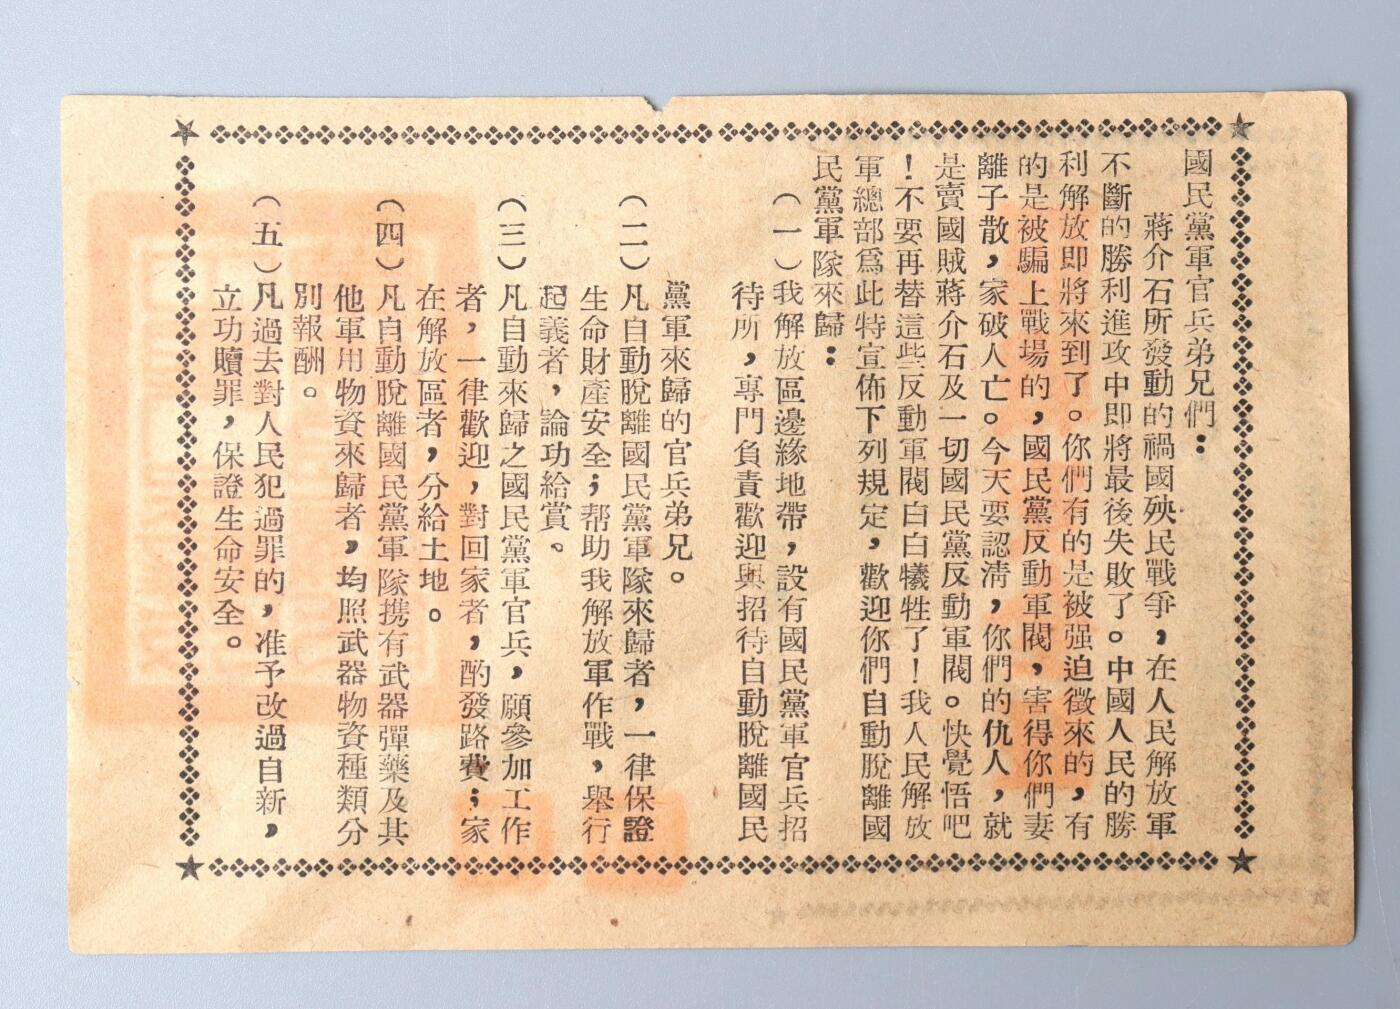 國民黨軍官兵弟兄們：
蔣介石所發動的禍國殃民戰爭，在人民解放軍
不斷的勝利進攻中即將最後失敗了。中國人民的勝
利解放即將來到了。你們有的是被强迫徵來的，有
的是被騙上戰場的，國民黨反動軍閥，害得你們妻
離子散，家破人亡。今天要認淸，你們的仇人，就
是賣國賊蔣介石及一切國民黨反動軍閥。快覺悟吧
！不要再替這些反動軍閥白白犧牲了！我人民解放
軍總部爲此特宣佈下列規定，歡迎你們自動脫離國
民黨軍隊來歸：
（一）我解放區邊緣地帶，設有國民黨軍官兵招
待所，專門負責歡迎與招待自動脫離國民
黨軍來歸的官兵弟兄。
（二）凡自動脫離國民黨軍隊來歸者，一律保證
生命財產安全；帮助我解放軍作戰，舉行
起義者，論功給賞。
（三）凡自動來歸之國民黨軍官兵，願參加工作
者，一律歡迎，對回家者，酌發路費；家
在解放區者，分給土地。
（四）凡自動脫離國民黨軍隊携有武器彈藥及其
他軍用物資來歸者，均照武器物資種類分
別報酬。
（五）凡過去對人民犯過罪的，准予改過自新，
立功贖罪，保證生命安全。